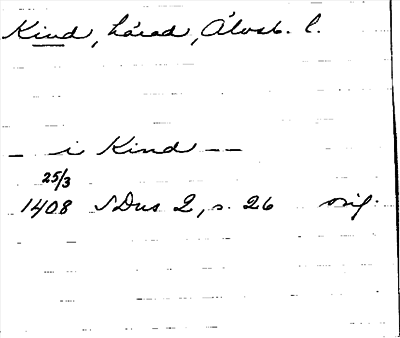 Kind, härad, Älvsb. l.
– i Kind – –
25/3
1408 SDns 2, s. 26 orig.